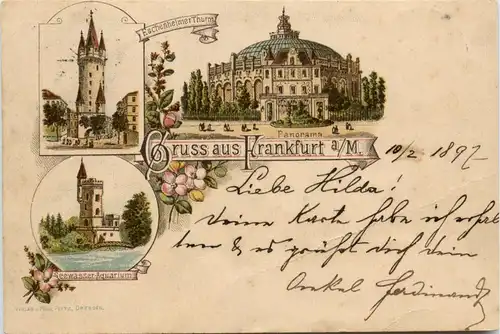 Eschenheimer Thurm
Panorama
Gruss aus Frankfurt a/M.
10/2 1897
Liebe Hilda!
Deine Karte habe ich erhal
ten & es grüßt dich dein
Onkel Ferdinand
Seewasser-Aquarium
DRESDEN.